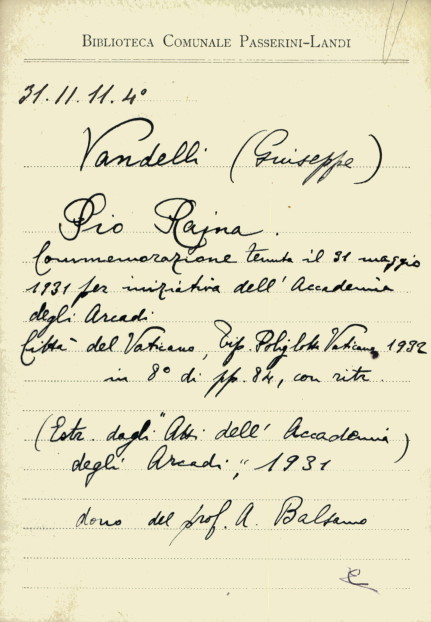 BIBLIOTECA COMUNALE PASSERINI-LANDI
31.II.11.4°
Vandelli (Giuseppe)
Pio Rajna.
Commemorazione tenuta il 31 maggio
1931 per iniziativa dell'Accademia
degli Arcadi
Città del Vaticano, Tip. Poliglotta Vaticana 1932
in 8° di pp. 84, con ritr.
(Estr. dagli "Atti dell'Accademia
degli Arcadi", 1931)
dono del prof. A. Balsamo